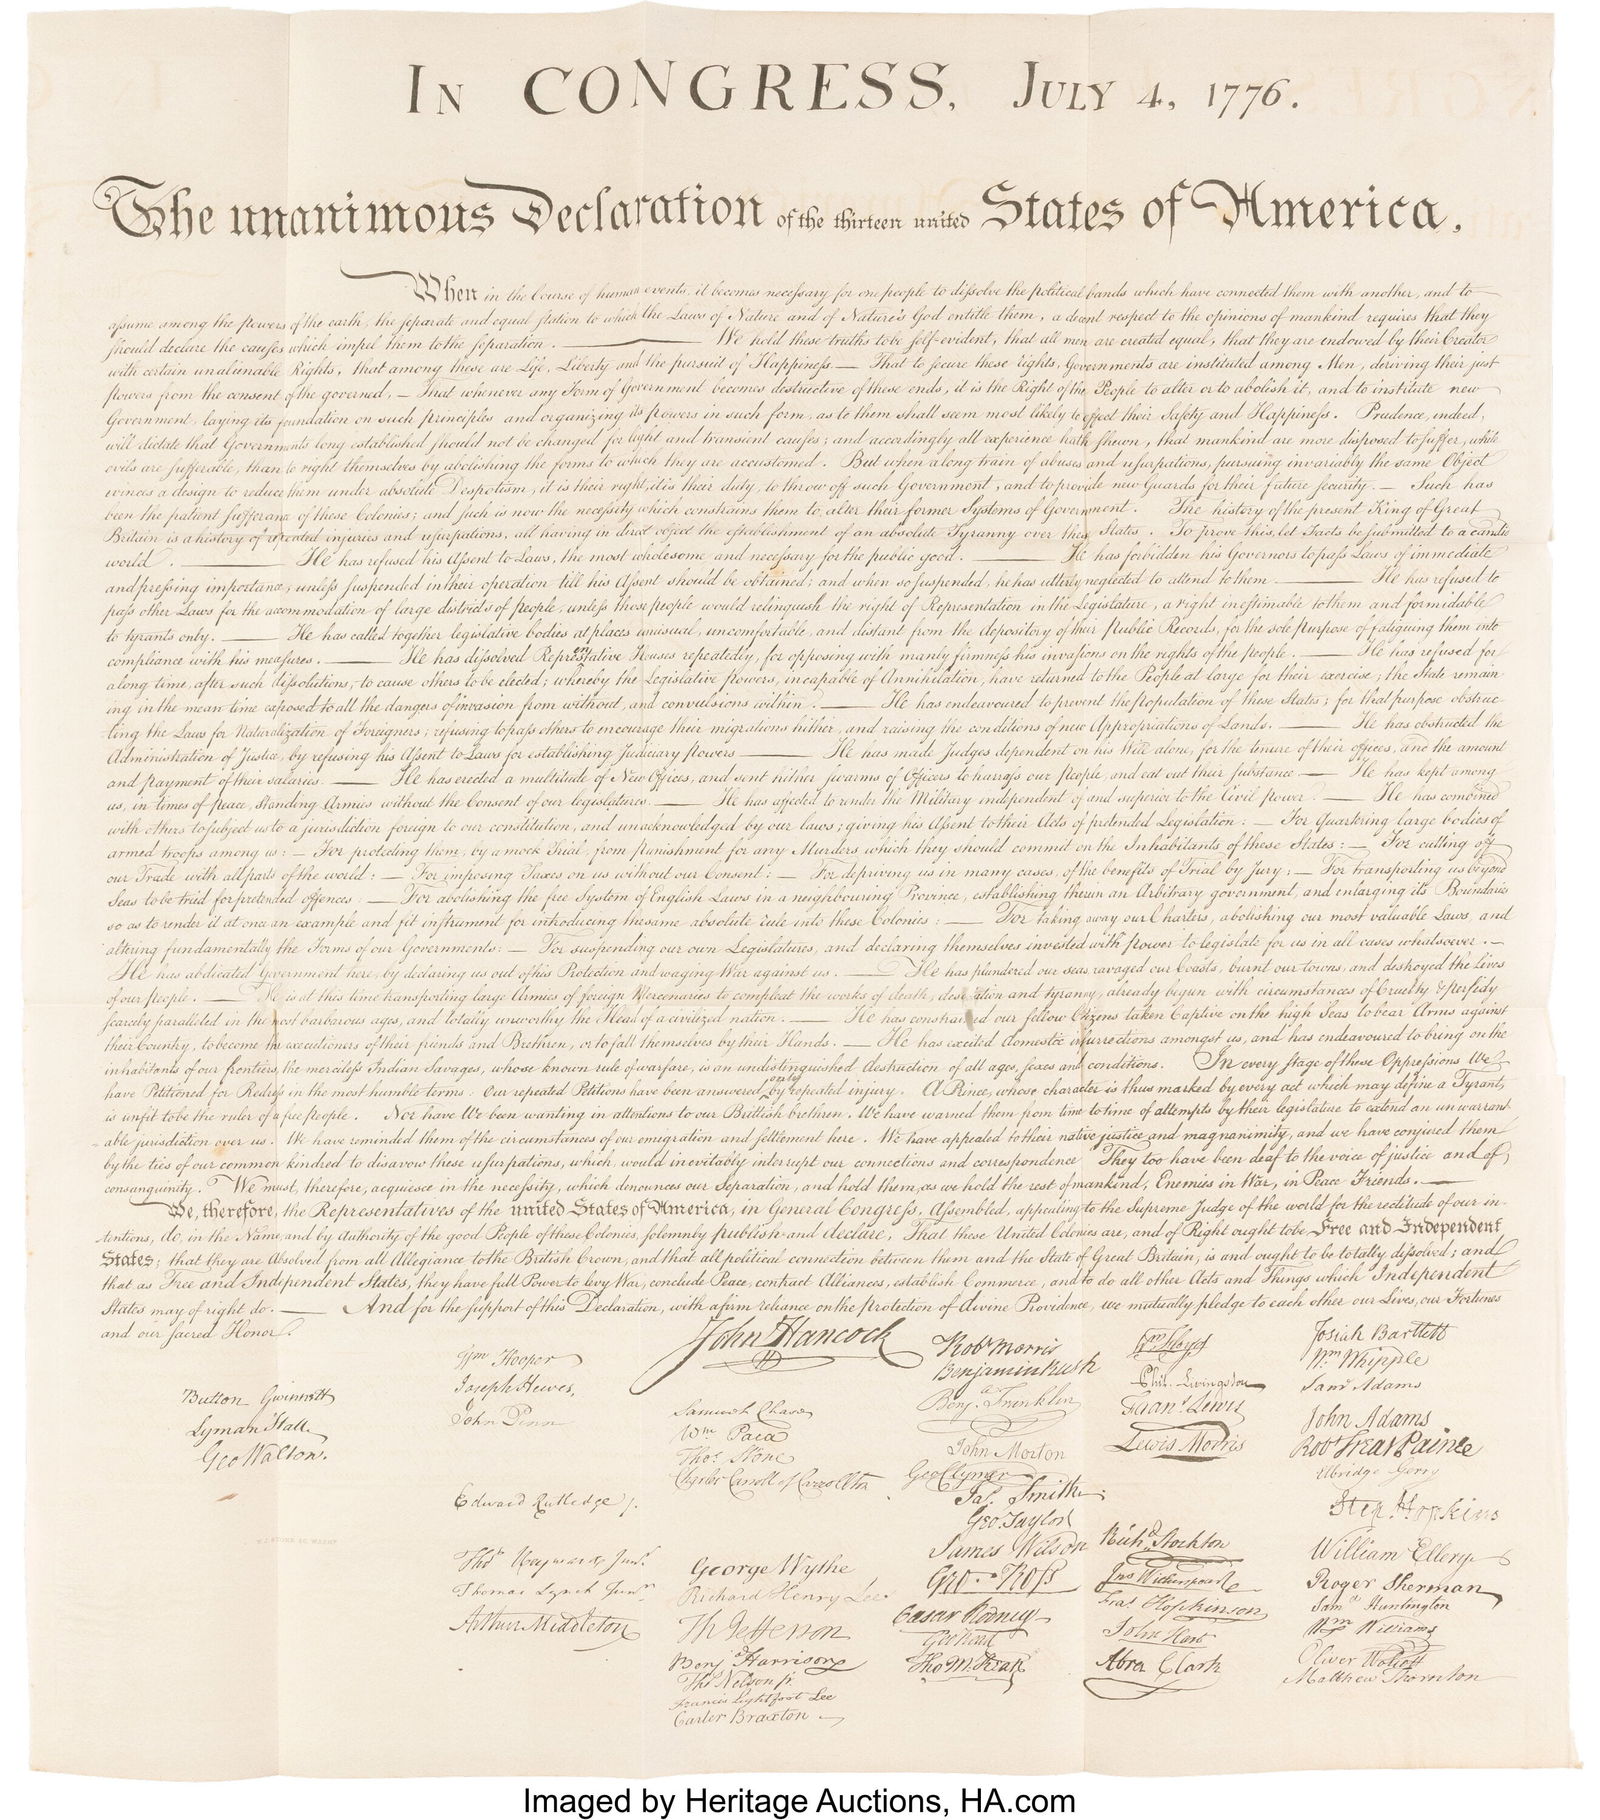 In CONGRESS, July 4, 1776.
The unanimous Declaration of the thirteen united States of America,
When in the Course of human events, it becomes necessary for one people to dissolve the political bands which have connected them with another, and to
assume among the powers of the earth, the separate and equal station to which the Laws of Nature and of Nature's God entitle them, a decent respect to the opinions of mankind requires that they
should declare the causes which impel them to the separation. — We hold these truths to be self-evident, that all men are created equal, that they are endowed by their Creator
with certain unalienable Rights, that among these are Life, Liberty and the pursuit of Happiness. — That to secure these rights, Governments are instituted among Men, deriving their just
powers from the consent of the governed, — That whenever any Form of Government becomes destructive of these ends, it is the Right of the People to alter or to abolish it, and to institute new
Government, laying its foundation on such principles and organizing its powers in such form, as to them shall seem most likely to effect their Safety and Happiness. Prudence, indeed,
will dictate that Governments long established should not be changed for light and transient causes; and accordingly all experience hath shewn, that mankind are more disposed to suffer, while
evils are sufferable, than to right themselves by abolishing the forms to which they are accustomed. But when a long train of abuses and usurpations, pursuing invariably the same Object
evinces a design to reduce them under absolute Despotism, it is their right, it is their duty, to throw off such Government, and to provide new Guards for their future security. — Such has
been the patient sufferance of these Colonies; and such is now the necessity which constrains them to alter their former Systems of Government. The history of the present King of Great
Britain is a history of repeated injuries and usurpations, all having in direct object the establishment of an absolute Tyranny over these States. To prove this, let Facts be submitted to a candid
world. — He has refused his Assent to Laws, the most wholesome and necessary for the public good. — He has forbidden his Governors to pass Laws of immediate
and pressing importance, unless suspended in their operation till his Assent should be obtained; and when so suspended, he has utterly neglected to attend to them. — He has refused to
pass other Laws for the accommodation of large districts of people, unless those people would relinquish the right of Representation in the Legislature, a right inestimable to them and formidable
to tyrants only. — He has called together legislative bodies at places unusual, uncomfortable, and distant from the depository of their Public Records, for the sole purpose of fatiguing them into
compliance with his measures. — He has dissolved Representative Houses repeatedly, for opposing with manly firmness his invasions on the rights of the people. — He has refused for
a long time, after such dissolutions, to cause others to be elected; whereby the Legislative powers, incapable of Annihilation, have returned to the People at large for their exercise; the State remain-
ing in the mean time exposed to all the dangers of invasion from without, and convulsions within. — He has endeavoured to prevent the population of these States; for that purpose obstruc-
ting the Laws for Naturalization of Foreigners; refusing to pass others to encourage their migrations hither, and raising the conditions of new Appropriations of Lands. — He has obstructed the
Administration of Justice, by refusing his Assent to Laws for establishing Judiciary powers — He has made Judges dependent on his Will alone, for the tenure of their offices, and the amount
and payment of their salaries. — He has erected a multitude of New Offices, and sent hither swarms of Officers to harrass our people, and eat out their substance. — He has kept among
us, in times of peace, Standing Armies without the Consent of our legislatures. — He has affected to render the Military independent of and superior to the Civil power. — He has combined
with others to subject us to a jurisdiction foreign to our constitution, and unacknowledged by our laws; giving his Assent to their Acts of pretended Legislation: — For quartering large bodies of
armed troops among us: — For protecting them, by a mock Trial, from punishment for any Murders which they should commit on the Inhabitants of these States: — For cutting off
our Trade with all parts of the world: — For imposing Taxes on us without our Consent: — For depriving us in many cases, of the benefits of Trial by Jury: — For transporting us beyond
Seas to be tried for pretended offences — For abolishing the free System of English Laws in a neighbouring Province, establishing therein an Arbitrary government, and enlarging its Boundaries
so as to render it at once an example and fit instrument for introducing the same absolute rule into these Colonies: — For taking away our Charters, abolishing our most valuable Laws, and
altering fundamentally the Forms of our Governments: — For suspending our own Legislatures, and declaring themselves invested with power to legislate for us in all cases whatsoever. —
He has abdicated Government here, by declaring us out of his Protection and waging War against us. — He has plundered our seas, ravaged our Coasts, burnt our towns, and destroyed the lives
of our people. — He is at this time transporting large Armies of foreign Mercenaries to compleat the works of death, desolation and tyranny, already begun with circumstances of Cruelty & perfidy
scarcely paralleled in the most barbarous ages, and totally unworthy the Head of a civilized nation. — He has constrained our fellow Citizens taken Captive on the high Seas to bear Arms against
their Country, to become the executioners of their friends and Brethren, or to fall themselves by their Hands. — He has excited domestic insurrections amongst us, and has endeavoured to bring on the
inhabitants of our frontiers, the merciless Indian Savages, whose known rule of warfare, is an undistinguished destruction of all ages, sexes and conditions. In every stage of these Oppressions We
have Petitioned for Redress in the most humble terms: Our repeated Petitions have been answered only by repeated injury. A Prince, whose character is thus marked by every act which may define a Tyrant,
is unfit to be the ruler of a free people. Nor have We been wanting in attentions to our Brittish brethren. We have warned them from time to time of attempts by their legislature to extend an unwarrant-
able jurisdiction over us. We have reminded them of the circumstances of our emigration and settlement here. We have appealed to their native justice and magnanimity, and we have conjured them
by the ties of our common kindred to disavow these usurpations, which, would inevitably interrupt our connections and correspondence They too have been deaf to the voice of justice and of
consanguinity. We must, therefore, acquiesce in the necessity, which denounces our Separation, and hold them, as we hold the rest of mankind, Enemies in War, in Peace Friends. —
We, therefore, the Representatives of the united States of America, in General Congress, Assembled, appealing to the Supreme Judge of the world for the rectitude of our in-
tentions, do, in the Name, and by Authority of the good People of these Colonies, solemnly publish and declare, That these United Colonies are, and of Right ought to be Free and Independent
States; that they are Absolved from all Allegiance to the British Crown, and that all political connection between them and the State of Great Britain, is and ought to be totally dissolved; and
that as Free and Independent States, they have full Power to levy War, conclude Peace, contract Alliances, establish Commerce, and to do all other Acts and Things which Independent
States may of right do. — And for the support of this Declaration, with a firm reliance on the protection of divine Providence, we mutually pledge to each other our Lives, our Fortunes
and our sacred Honor.
Button Gwinnett
Lyman Hall
Geo Walton.
Wm Hooper
Joseph Hewes,
John Penn
Edward Rutledge /.
Thos Heyward Junr.
Thomas Lynch Junr.
Arthur Middleton
John Hancock
Samuel Chase
Wm Paca
Thos Stone
Charles Carroll of Carrollton
George Wythe
Richard Henry Lee
Th Jefferson
Benj Harrison
Thos Nelson jr.
Francis Lightfoot Lee
Carter Braxton
Robt Morris
Benjamin Rush
Benj. Franklin
John Morton
Geo Clymer
Jas. Smith
Geo. Taylor
James Wilson
Geo. Ross
Caesar Rodney
Geo Read
Tho M:Kean
Wm Floyd
Phil. Livingston
Frans. Lewis
Lewis Morris
Richd. Stockton
Jno Witherspoon
Fras. Hopkinson
John Hart
Abra Clark
Josiah Bartlett
Wm Whipple
Saml Adams
John Adams
Robt Treat Paine
Elbridge Gerry
Step. Hopkins
William Ellery
Roger Sherman
Saml Huntington
Wm Williams
Oliver Wolcott
Matthew Thornton
Imaged by Heritage Auctions, HA.com